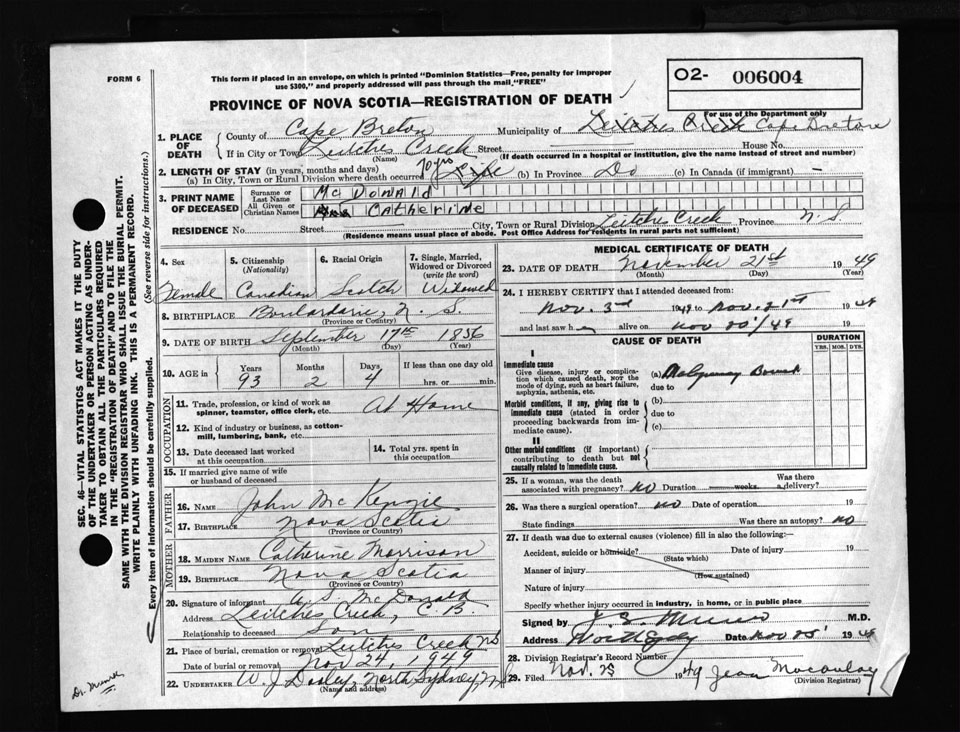 FORM 6
This form if placed in an envelope, on which is printed "Dominion Statistics—Free, penalty for improper
use $300," and properly addressed will pass through the mail "FREE"
O2- 006004
For use of the Department only
PROVINCE OF NOVA SCOTIA—REGISTRATION OF DEATH
1. PLACE OF DEATH
County of Cape Breton Municipality of Leitches Creek Cape Breton
If in City or Town Leitches Creek Street House No.
(Name) (If death occurred in a hospital or institution, give the name instead of street and number)
2. LENGTH OF STAY (in years, months and days)
(a) In City, Town or Rural Division where death occurred 70 yrs Life (b) In Province Do (c) In Canada (if immigrant) —
3. PRINT NAME OF DECEASED
Surname or Last Name McDONAld
All Given or Christian Names CATheriNe
RESIDENCE No. Street City, Town or Rural Division Leitches Creek Province N.S.
(Residence means usual place of abode. Post Office Address for residents in rural parts not sufficient)
4. Sex Female
5. Citizenship (Nationality) Canadian
6. Racial Origin Scotch
7. Single, Married, Widowed or Divorced (write the word) Widowed
8. BIRTHPLACE Boulardarie, N.S.
(Province or Country)
9. DATE OF BIRTH September 17th 1856
(Month) (Day) (Year)
10. AGE in Years 93 Months 2 Days 4 If less than one day old hrs. or min.
OCCUPATION
11. Trade, profession or kind of work as spinner, teamster, office clerk, etc. At Home
12. Kind of industry or business, as cotton-mill, lumbering, bank, etc.
13. Date deceased last worked at this occupation
14. Total yrs. spent in this occupation
15. If married give name of wife or husband of deceased
FATHER
16. NAME John McKenzie
17. BIRTHPLACE Nova Scotia
(Province or Country)
MOTHER
18. MAIDEN NAME Catherine Morrison
19. BIRTHPLACE Nova Scotia
(Province or Country)
20. Signature of informant McDonald
Address Leitches Creek, C.B.
Relationship to deceased Son
21. Place of burial, cremation or removal Leitches Creek NS
Date of burial or removal Nov 24, 1949
22. UNDERTAKER W. J. Dooley, North Sydney, N.S.
(Name and address)
MEDICAL CERTIFICATE OF DEATH
23. DATE OF DEATH November 21st 1949
(Month) (Day) (Year)
24. I HEREBY CERTIFY that I attended deceased from:
Nov. 3rd 1949 to Nov. 21st 1949
and last saw h alive on Nov
CAUSE OF DEATH
DURATION
YRS. MOS. DYS.
I
Immediate cause
Give disease, injury or complication which caused death, NOT the mode of dying, such as heart failure, asphyxia, asthenia, etc.
(a) Malignancy Bowel
due to
Morbid conditions, if any, giving rise to immediate cause (stated in order proceeding backwards from immediate cause).
(b)
due to
(c)
II
Other morbid conditions (if important) contributing to death but not causally related to immediate cause.
25. If a woman, was the death associated with pregnancy? no Duration weeks. Was there a delivery?
26. Was there a surgical operation? no Date of operation 19
State findings Was there an autopsy? no
27. If death was due to external causes (violence) fill in also the following:—
Accident, suicide or homicide? Date of injury 19
(State which)
Manner of injury
(How sustained)
Nature of injury
Specify whether injury occurred in industry, in home, or in public place
Signed by M.D.
Address Date Nov 1949
28. Division Registrar's Record Number
29. Filed Nov. 25 1949 Jean Macaulay
(Division Registrar)
SEC. 46—VITAL STATISTICS ACT MAKES IT THE DUTY
OF THE UNDERTAKER OR PERSON ACTING AS UNDER-
TAKER TO OBTAIN ALL THE PARTICULARS REQUIRED
IN THE "REGISTRATION OF DEATH" AND TO FILE THE
SAME WITH THE DIVISION REGISTRAR WHO SHALL ISSUE THE BURIAL PERMIT.
WRITE PLAINLY WITH UNFADING INK. THIS IS A PERMANENT RECORD.
Every item of information should be carefully supplied. (See reverse side for instructions.)